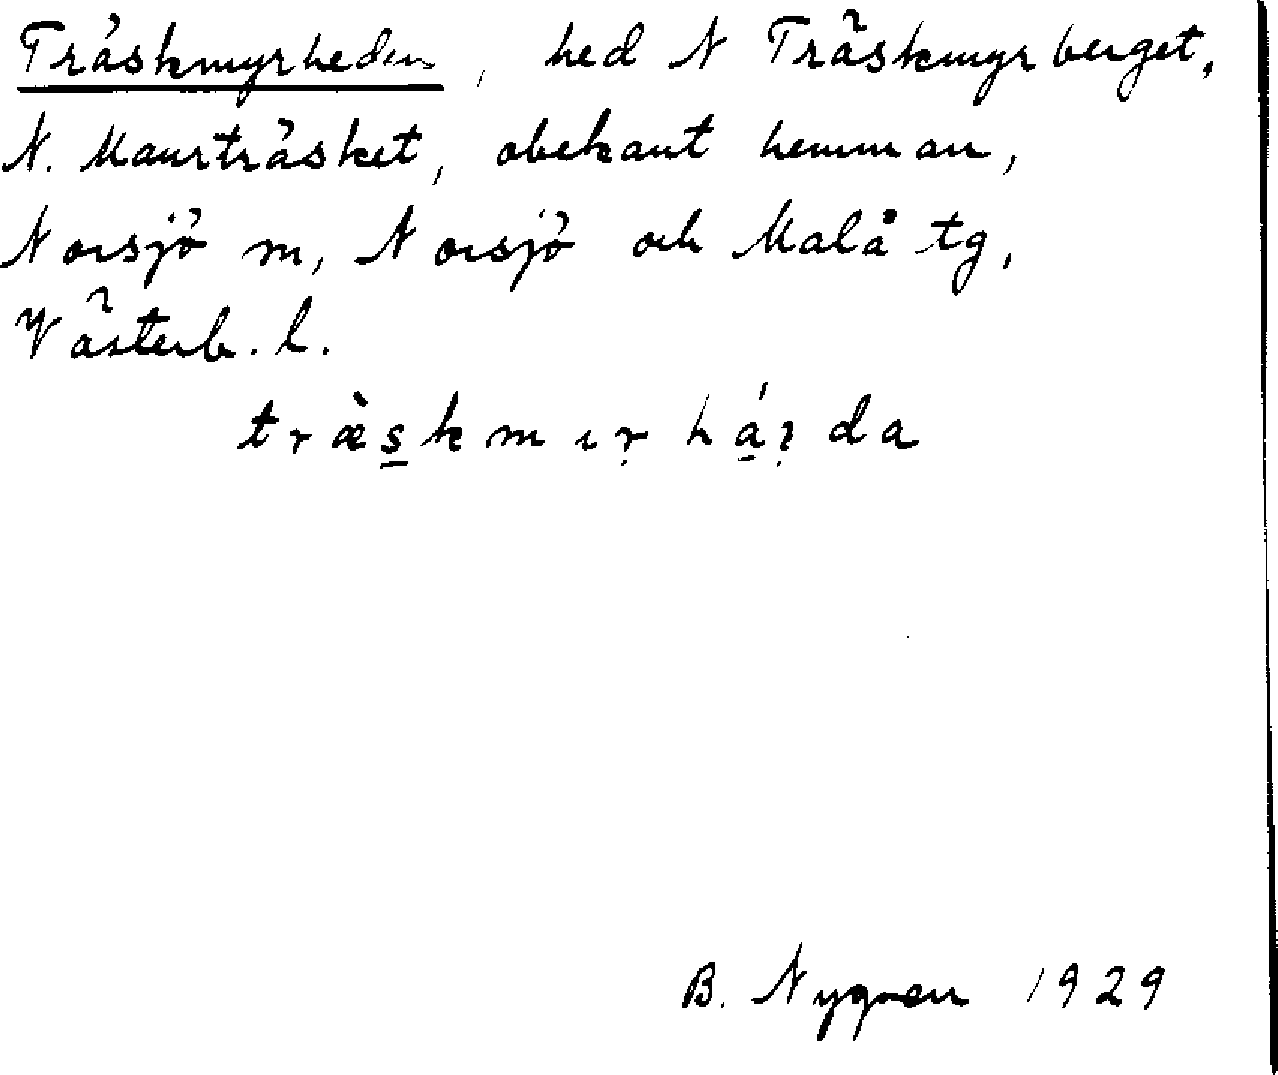 Träskmyrheden, hed N Träskmyrberget,
N. Maurträsket, obekant hemman,
Norsjö sn, Norsjö och Malå tg,
Västerb. l.
B. Nygren 1929